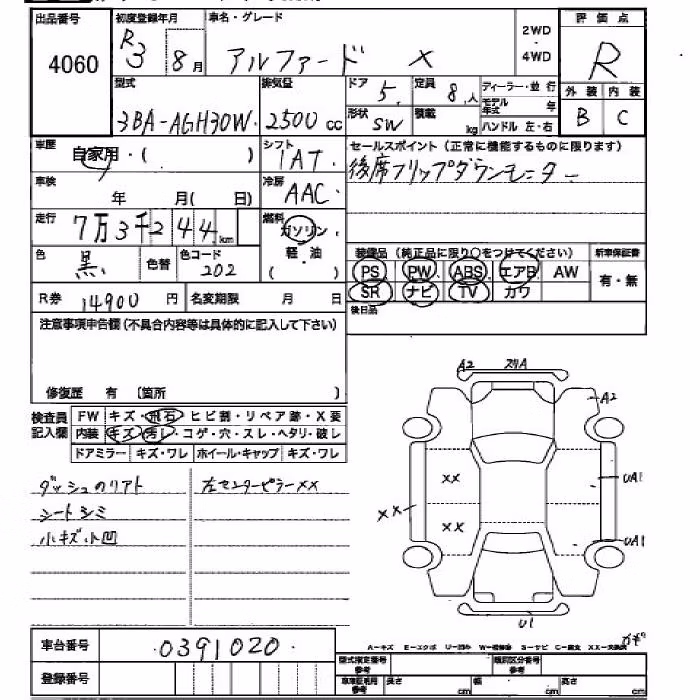 出品番号 初度登録年月 車名・グレード 2WD・4WD 評価点
4060 R3 8月 アルファード X R
型式 排気量 ドア 5 定員 8人 ディーラー・並行 外装 内装
モデル年式 年 B C
3BA-AGH30W 2500cc 形状 SW 積載 kg ハンドル 左・右
車歴 自家用・( ) シフト IAT セールスポイント(正常に機能するものに限ります)
後席フリップダウンモニター
車検 年 月( 日) 冷房 AAC
走行 7万3千244km 燃料 ガソリン・軽・油 ( )
色 黒 色替 色コード 202 装備品(純正品に限り○をつけてください) 新車保証書
PS PW ABS エアB AW 有・無
SR ナビ TV カワ
R券 14900円 名変期限 月 日 後日品
注意事項申告欄(不具合内容等は具体的に記入して下さい)
修復歴 有 〔箇所 〕
検査員記入欄 FW キズ・飛石・ヒビ割・リペア跡・X要
内装 キズ・汚レ・コゲ・穴・スレ・ヘタリ・破レ
ドアミラー キズ・ワレ ホイール・キャップ キズ・ワレ
ダッシュのリアト 左センターピラーXX
シートシミ
小キズ小凹
A2
A2
XX UA1
XX
XX UA1
U1
車台番号 0391020
A-キズ E-エクボ U-凹み
登録番号 型式指定番号参考 類別区分番号参考
車庫証明用参考 長さ cm 幅 cm 高さ cm